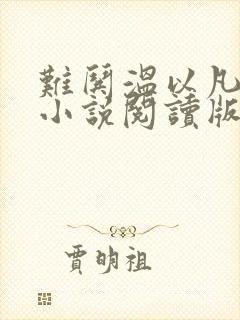 難鬨溫以凡
小說閱讀版
賈明祖